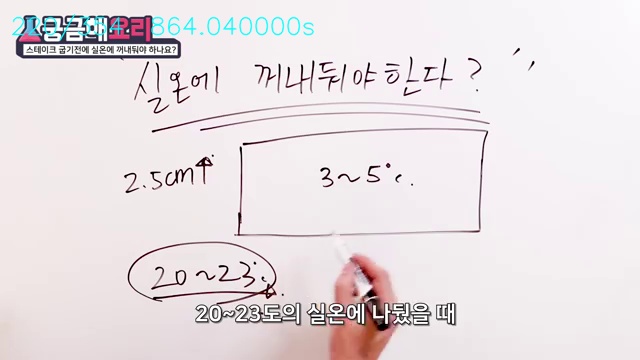 864.040000s
궁금해요리
스테이크 굽기전에 실온에 꺼내둬야 하나요?
실온에 꺼내둬야한다?
2.5cm↑
3~5℃.
20~23℃.
20~23도의 실온에 놔뒀을 때